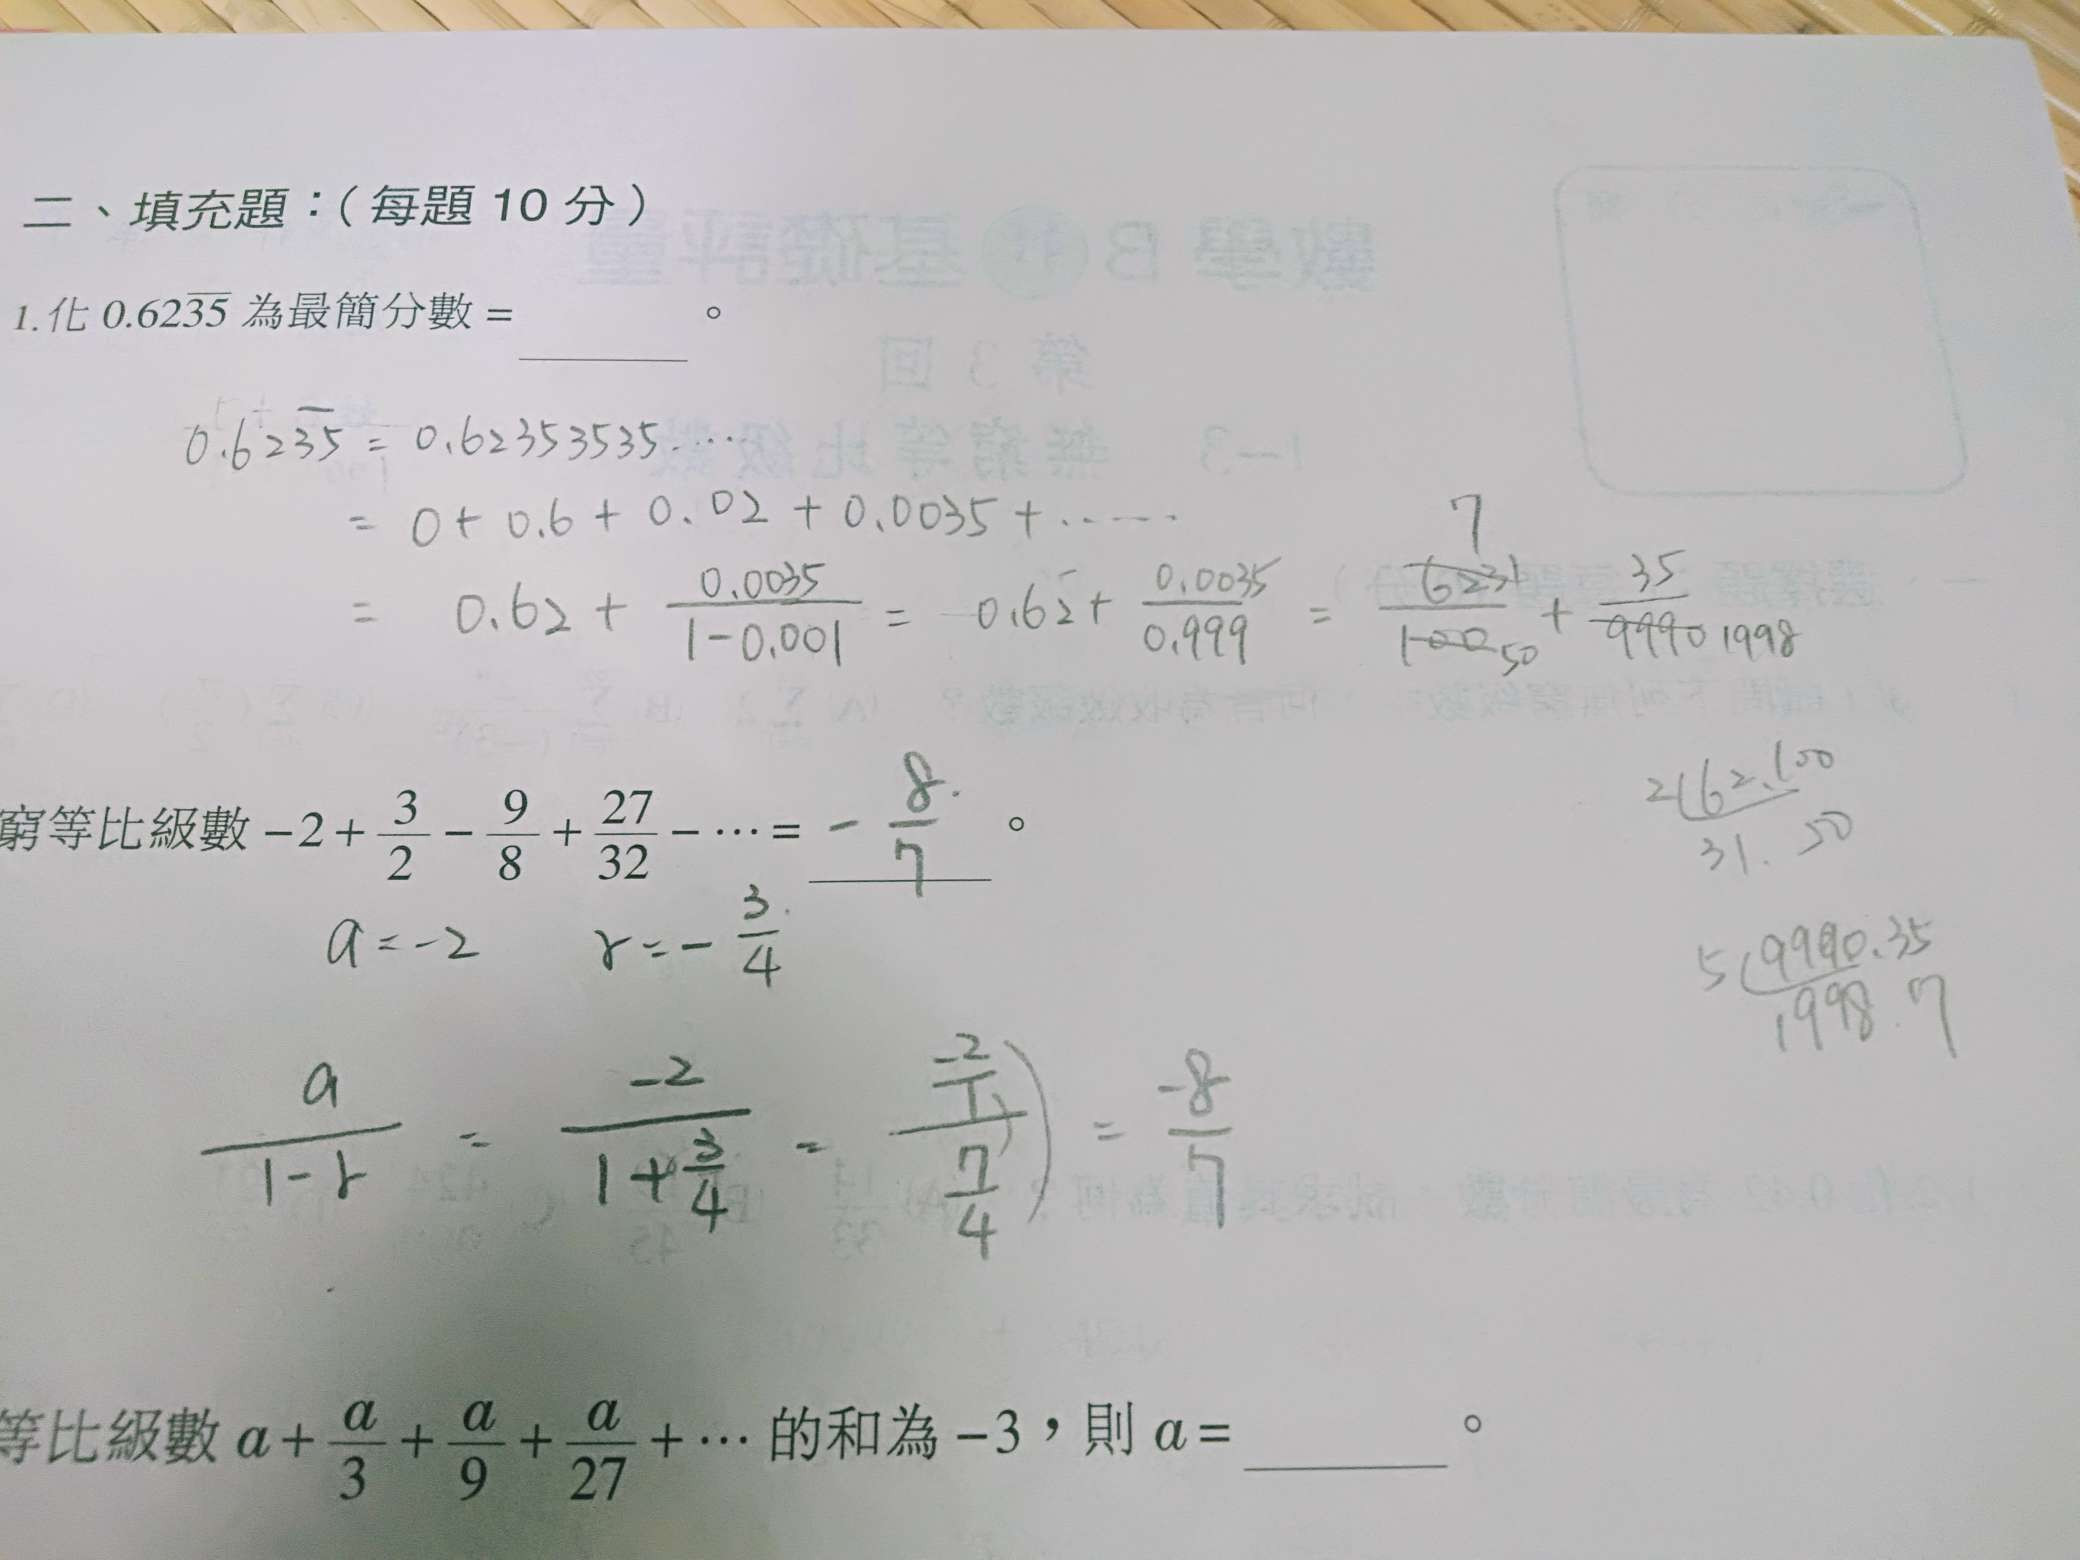 二、填充題：(每題 10 分)
1. 化 0.62\overline{35} 為最簡分數 = ______ 。
0.62\overline{35} = 0.62353535....
= 0 + 0.6 + 0.02 + 0.0035 + ......
= 0.62 + 0.0035/(1-0.001) = 0.62 + 0.0035/0.999 = 62/100 + 35/9990
31 50 7 1998
窮等比級數 −2 + 3/2 − 9/8 + 27/32 − ⋯ = -8/7 。
2(62.100
31. 50
a = -2 r = -3/4
5(9990.35
1998.7
a/(1-r) = -2/(1+3/4) = (-2/1)/(7/4) = -8/7
等比級數 a + a/3 + a/9 + a/27 + ⋯ 的和為 −3，則 a = ______ 。